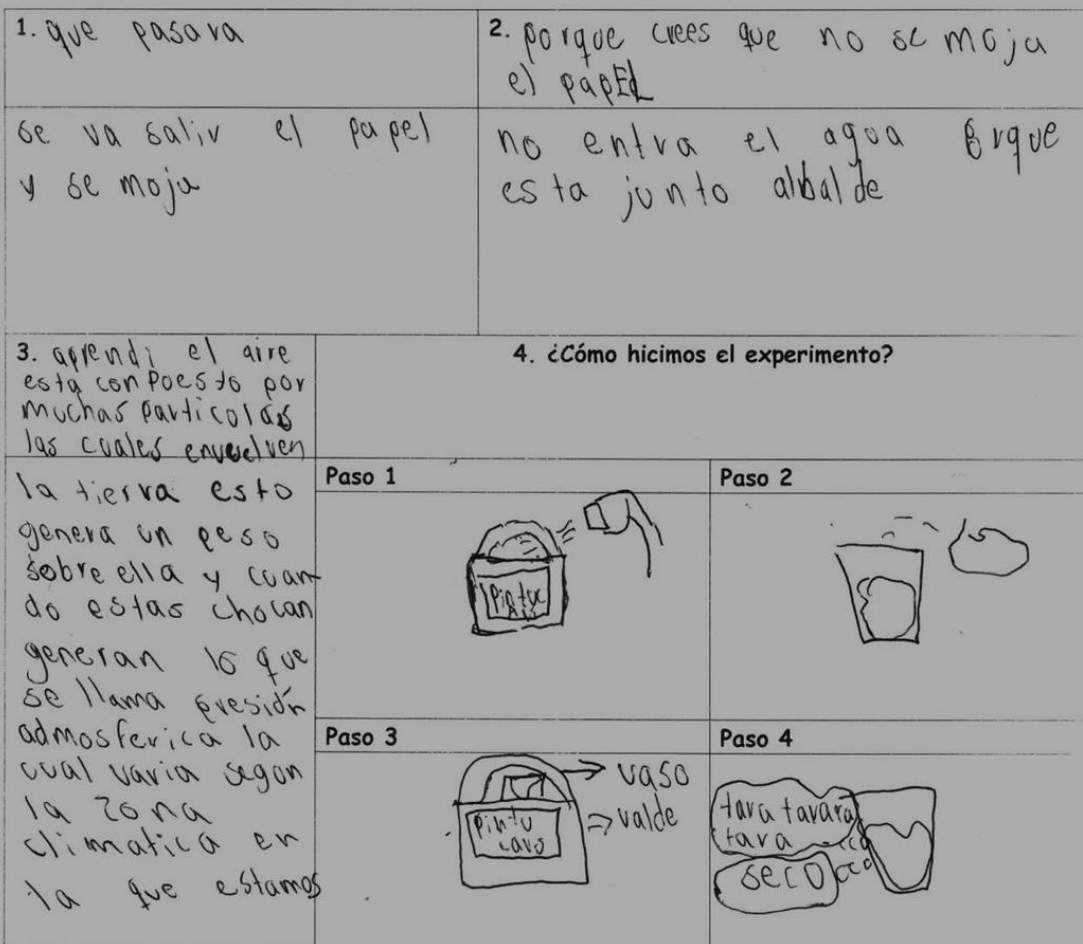 1. que pasara
2. porque crees que no se moja
el papEL
se va salir el papel
y se moja
no entra el agua porque
esta junto albalde
3. aprendi el aire
esta conpoesto por
muchas particolas
las cuales envuelven
la tierra esto
genera un peso
sobre ella y cuan
do estas chocan
generan lo que
se llama presión
admosferica la
cual varia segon
la zona
climatica en
la que estamos
4. ¿Cómo hicimos el experimento?
Paso 1
Paso 2
Paso 3
vaso
valde
Pintu
Paso 4
tara tarara
tara
seco